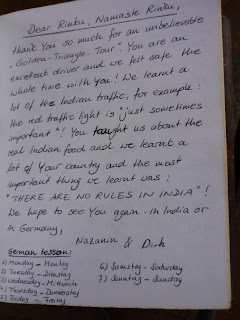 Dear Rinku, Namaste Rinku,
thank You so much for an unbelievable
"Golden-Triangle-Tour". You are an
excellent driver and we felt safe the
whole time with You! We learnt a
lot of the Indian traffic, for example:
the red traffic light is "just sometimes
important"! You taught us about the
real Indian food and we learnt a
lot of Your country and the most
important thing we learnt was:
"THERE ARE NO RULES IN INDIA"!
We hope to see You again - in India or
in Germany,
Nazanin & Dirk
German lesson:
1) Monday - Montag
2) Tuesday - Dienstag
3) Wednesday - Mittwoch
4) Thursday - Donnerstag
5) Friday - Freitag
6) Samstag - Saturday
7) Sonntag - Sunday